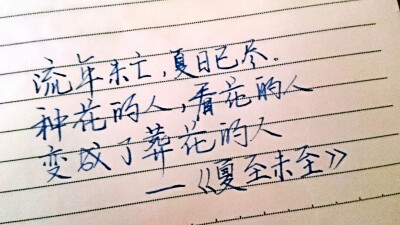 流年未亡,夏日已尽.
种花的人,看花的人
变成了葬花的人
—《夏至未至》